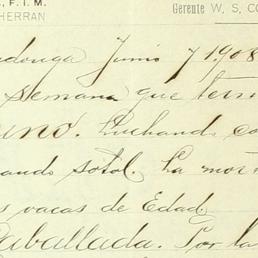 , F. I. M.
HERRAN
Gerente W. S. CO
Junio 7 1908
semana que
uno. Luchando co
ando sotol. La
s vacas de Edad
Caballada. Por la